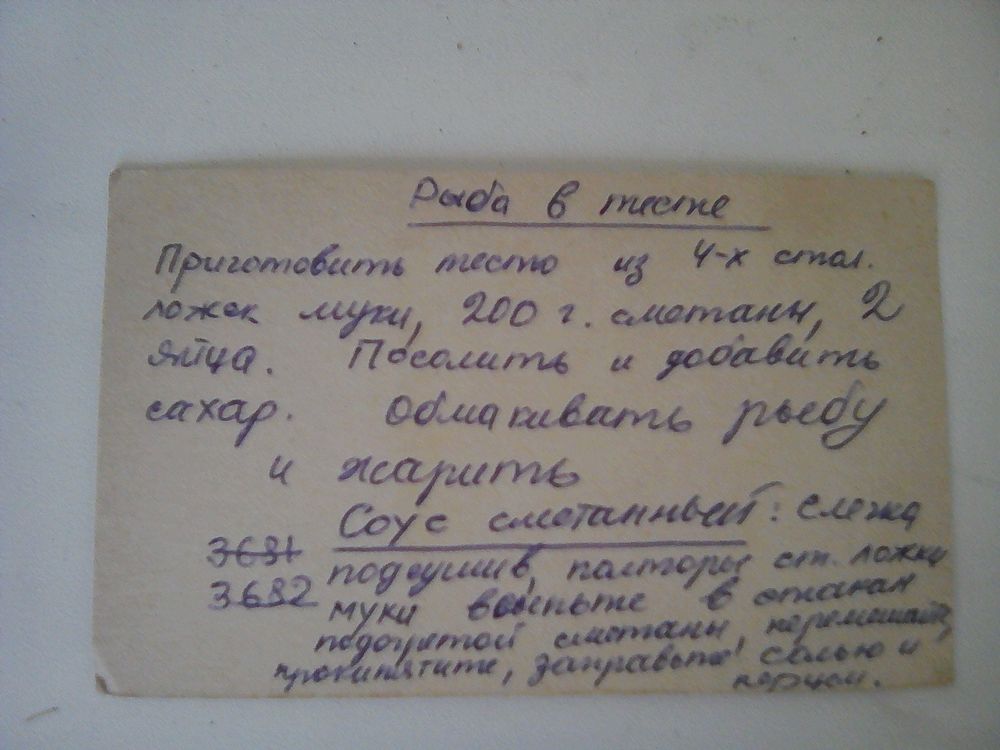 Рыба в тесте
Приготовить тесто из 4-х стол.
ложек муки, 200 г. сметаны, 2
яйца. Посолить и добавить
сахар. Обмакивать рыбу
и жарить
Соус сметанный: слегка
3681
подсушив, полторы ст. ложки
3682
муки всыпьте в стакан
подогретой сметаны, перемешайте,
прокипятите, заправьте солью и
перцем.